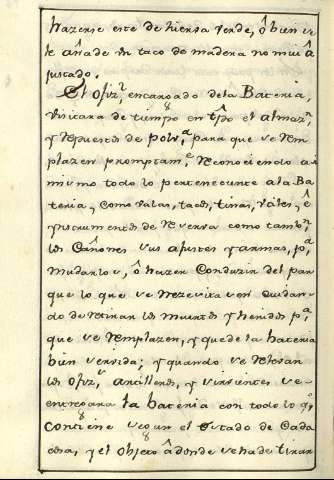 hazerse este de hierva verde, ô bien se
le añade un taco de madera no mui â
justado.
El ofiz.r encargado de la Bateria,
visitara de tiempo en tpô el almaz.n
y repuestos de polv.a para que se rem
plazen promptam.e reconociendo asi
mismo todo lo perteneciente a la Ba
teria, como valas, tacos, tinas, vales, ê
ynstrumentos de reserva como tamb.n
los Cañones sus ajustes y armas, p.a
mudarlos, ô hazer Conduzir del par
que lo que se nezesita ver cuidan
do de retirar los muertos y heridos p.a
que se remplazen, y quede la bateria
bien servida; y quando se relevan
los ofiz.s artilleros, y sirvientes se
entregara la bateria con todo lo q.e
contiene segun el Estado de Cada
cosa, y el objeto âdonde se ha de tirar